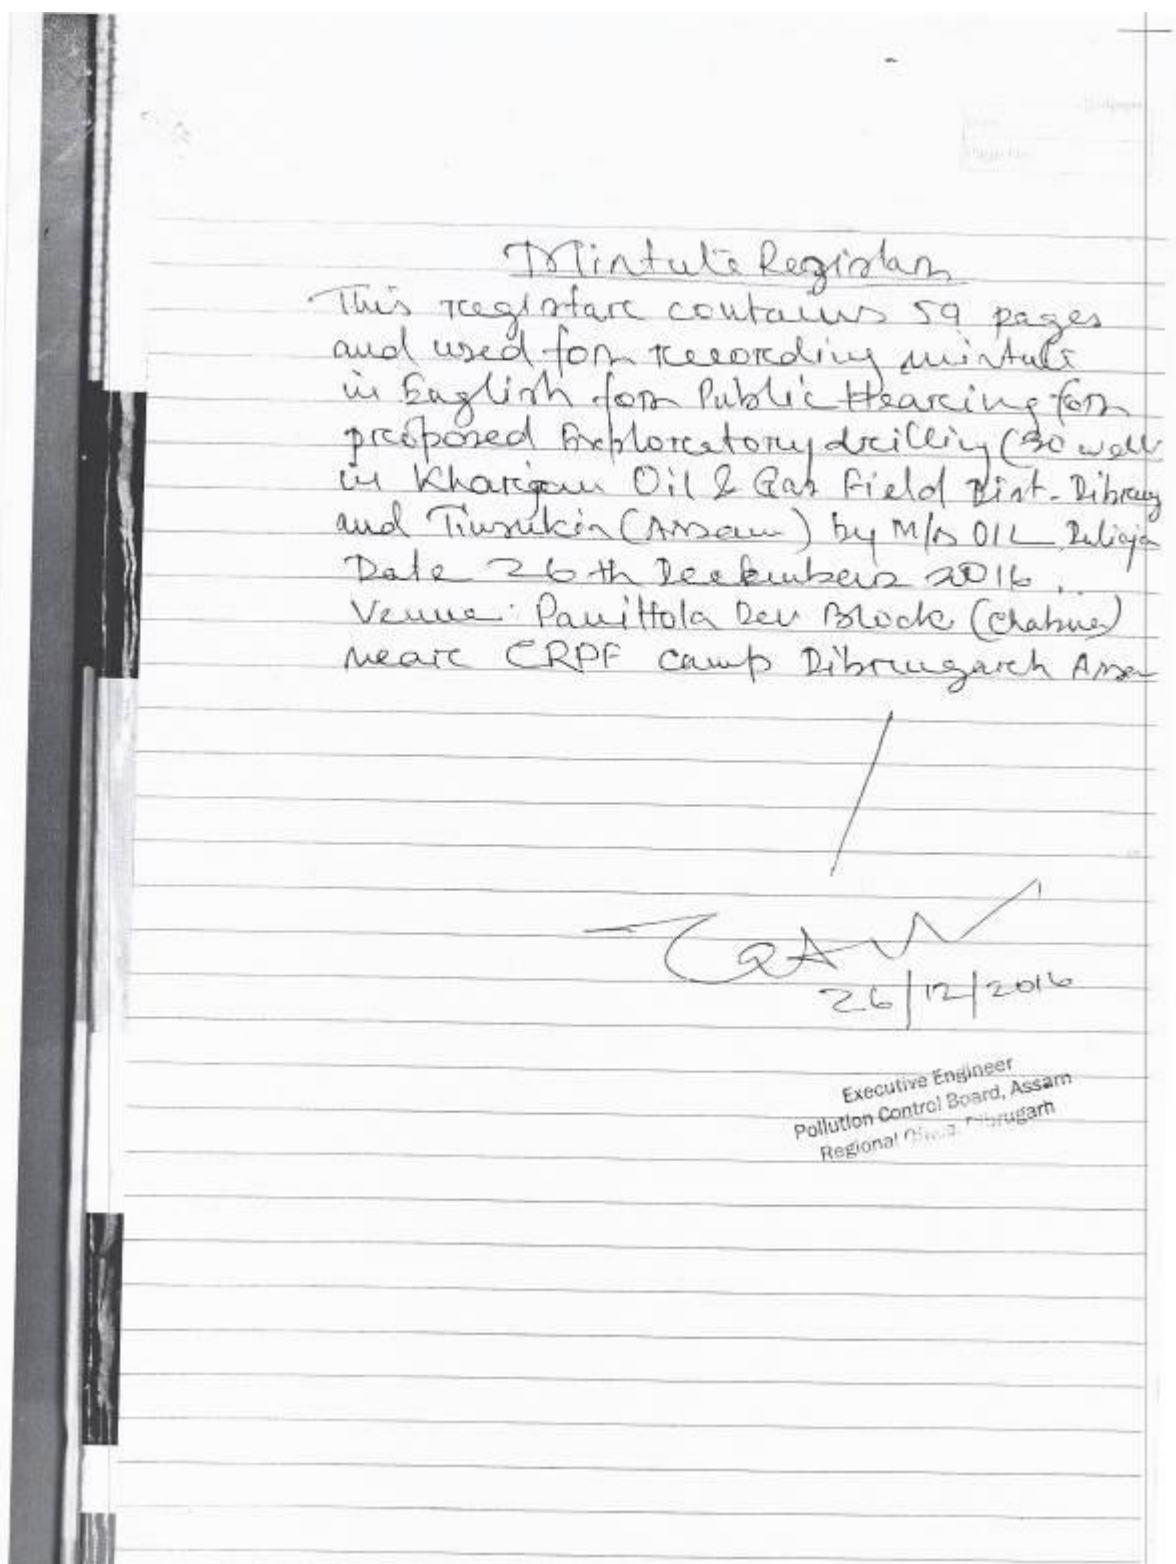 Mintute Registar
This registare contains 59 pages
and used for recording mintute
in English for Public Hearing for
proposed Exploratory drilling (30 well
in Khargan Oil & Gas Field Dist. Dibrug
and Tinsukia (Assam) by M/s OIL, Duliaja
Date 26th December 2016.
Venue: Panittola Dev Block (Chabua)
near CRPF camp Dibrugarh Assa
26/12/2016
Executive Engineer
Pollution Control Board, Assam
Regional Dibrugarh